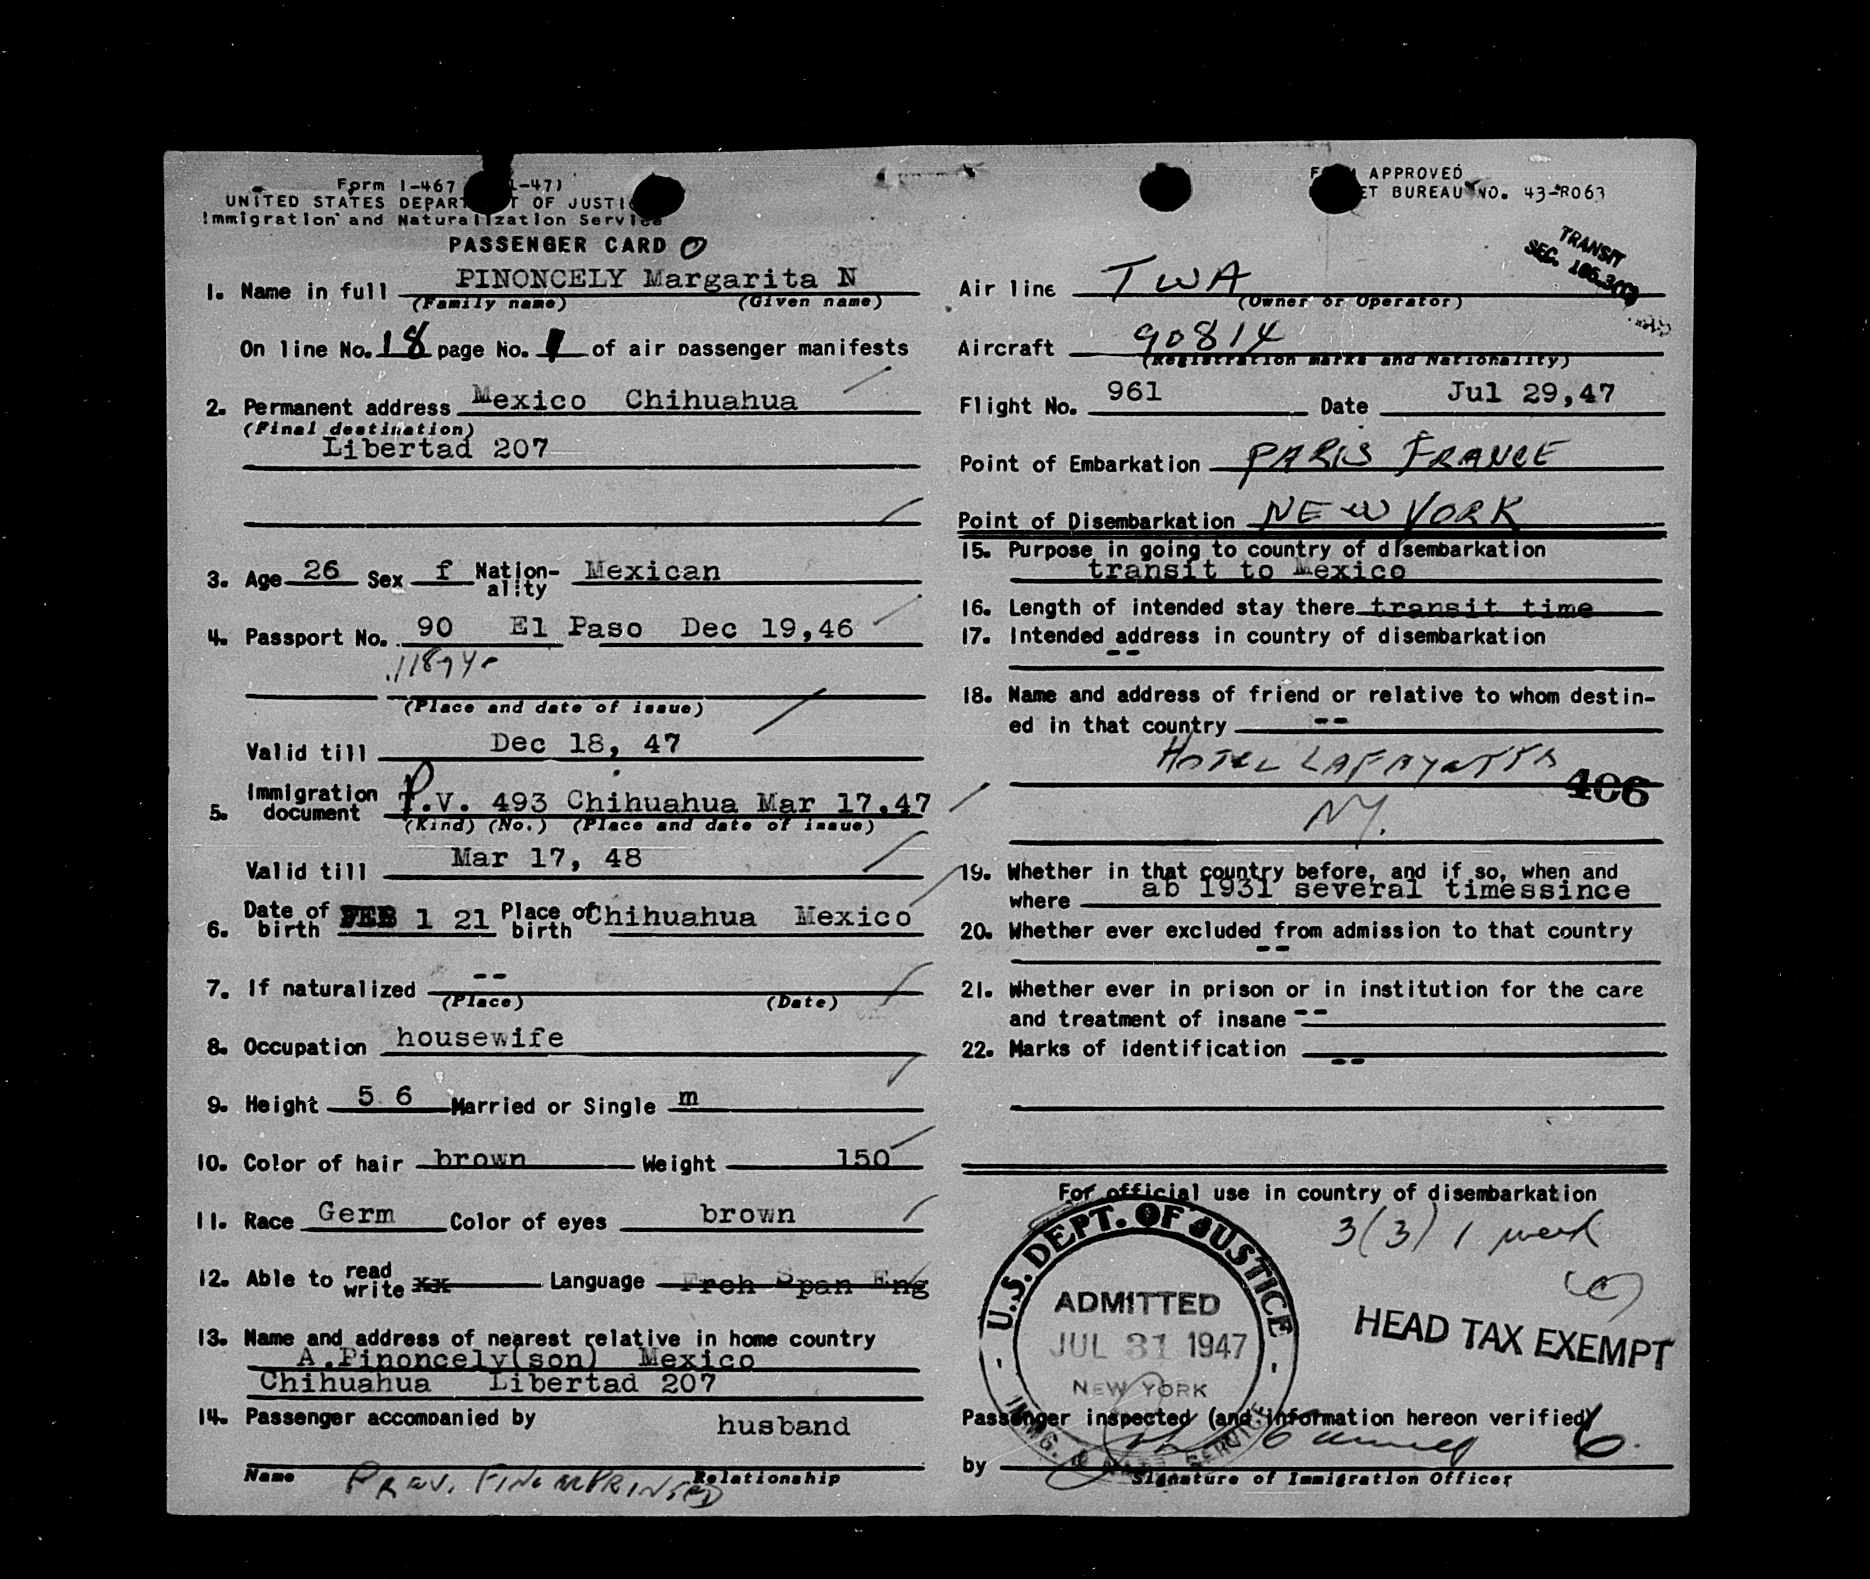 Form I-467 1-47)
UNITED STATES DEPARTMENT OF JUSTICE
Immigration and Naturalization Service
PASSENGER CARD
1. Name in full PINONCELY Margarita N
(Family name) (Given name)
On line No. 18 page No. 1 of air passenger manifests
2. Permanent address Mexico Chihuahua
(Final destination)
Libertad 207
3. Age 26 Sex f Nation-ality Mexican
4. Passport No. 90 El Paso Dec 19,46
(Place and date of issue)
Valid till Dec 18, 47
5. Immigration document P.V. 493 Chihuahua Mar 17.47
(Kind) (No.) (Place and date of issue)
Valid till Mar 17, 48
6. Date of birth FEB 1 21 Place of birth Chihuahua Mexico
7. If naturalized --
(Place) (Date)
8. Occupation housewife
9. Height 5 6 Married or Single m
10. Color of hair brown Weight 150
11. Race Germ Color of eyes brown
12. Able to read write xx Language Frch Span Eng
13. Name and address of nearest relative in home country
A.Pinoncely(son) Mexico
Chihuahua Libertad 207
14. Passenger accompanied by husband
Name Relationship
PREV. FINGERPRINTED
FORM APPROVED
BUDGET BUREAU NO. 43-R063
TRANSIT
SEC.
Air line TWA
(Owner or Operator)
Aircraft 90814
(Registration marks and Nationality)
Flight No. 961 Date Jul 29,47
Point of Embarkation PARIS FRANCE
Point of Disembarkation NEW YORK
15. Purpose in going to country of disembarkation
transit to Mexico
16. Length of intended stay there transit time
17. Intended address in country of disembarkation
--
18. Name and address of friend or relative to whom destin-
ed in that country --
HOTEL LAFAYETTE
406
NY.
19. Whether in that country before, and if so, when and
where ab 1931 several timessince
20. Whether ever excluded from admission to that country
--
21. Whether ever in prison or in institution for the care
and treatment of insane --
22. Marks of identification --
For official use in country of disembarkation
3(3) 1 week
U.S. DEPT. OF JUSTICE
ADMITTED
JUL 31 1947
NEW YORK
IMMG. & NATZ. SERVICE
HEAD TAX EXEMPT
Passenger inspected (and information hereon verified)
by
Signature of Immigration Officer